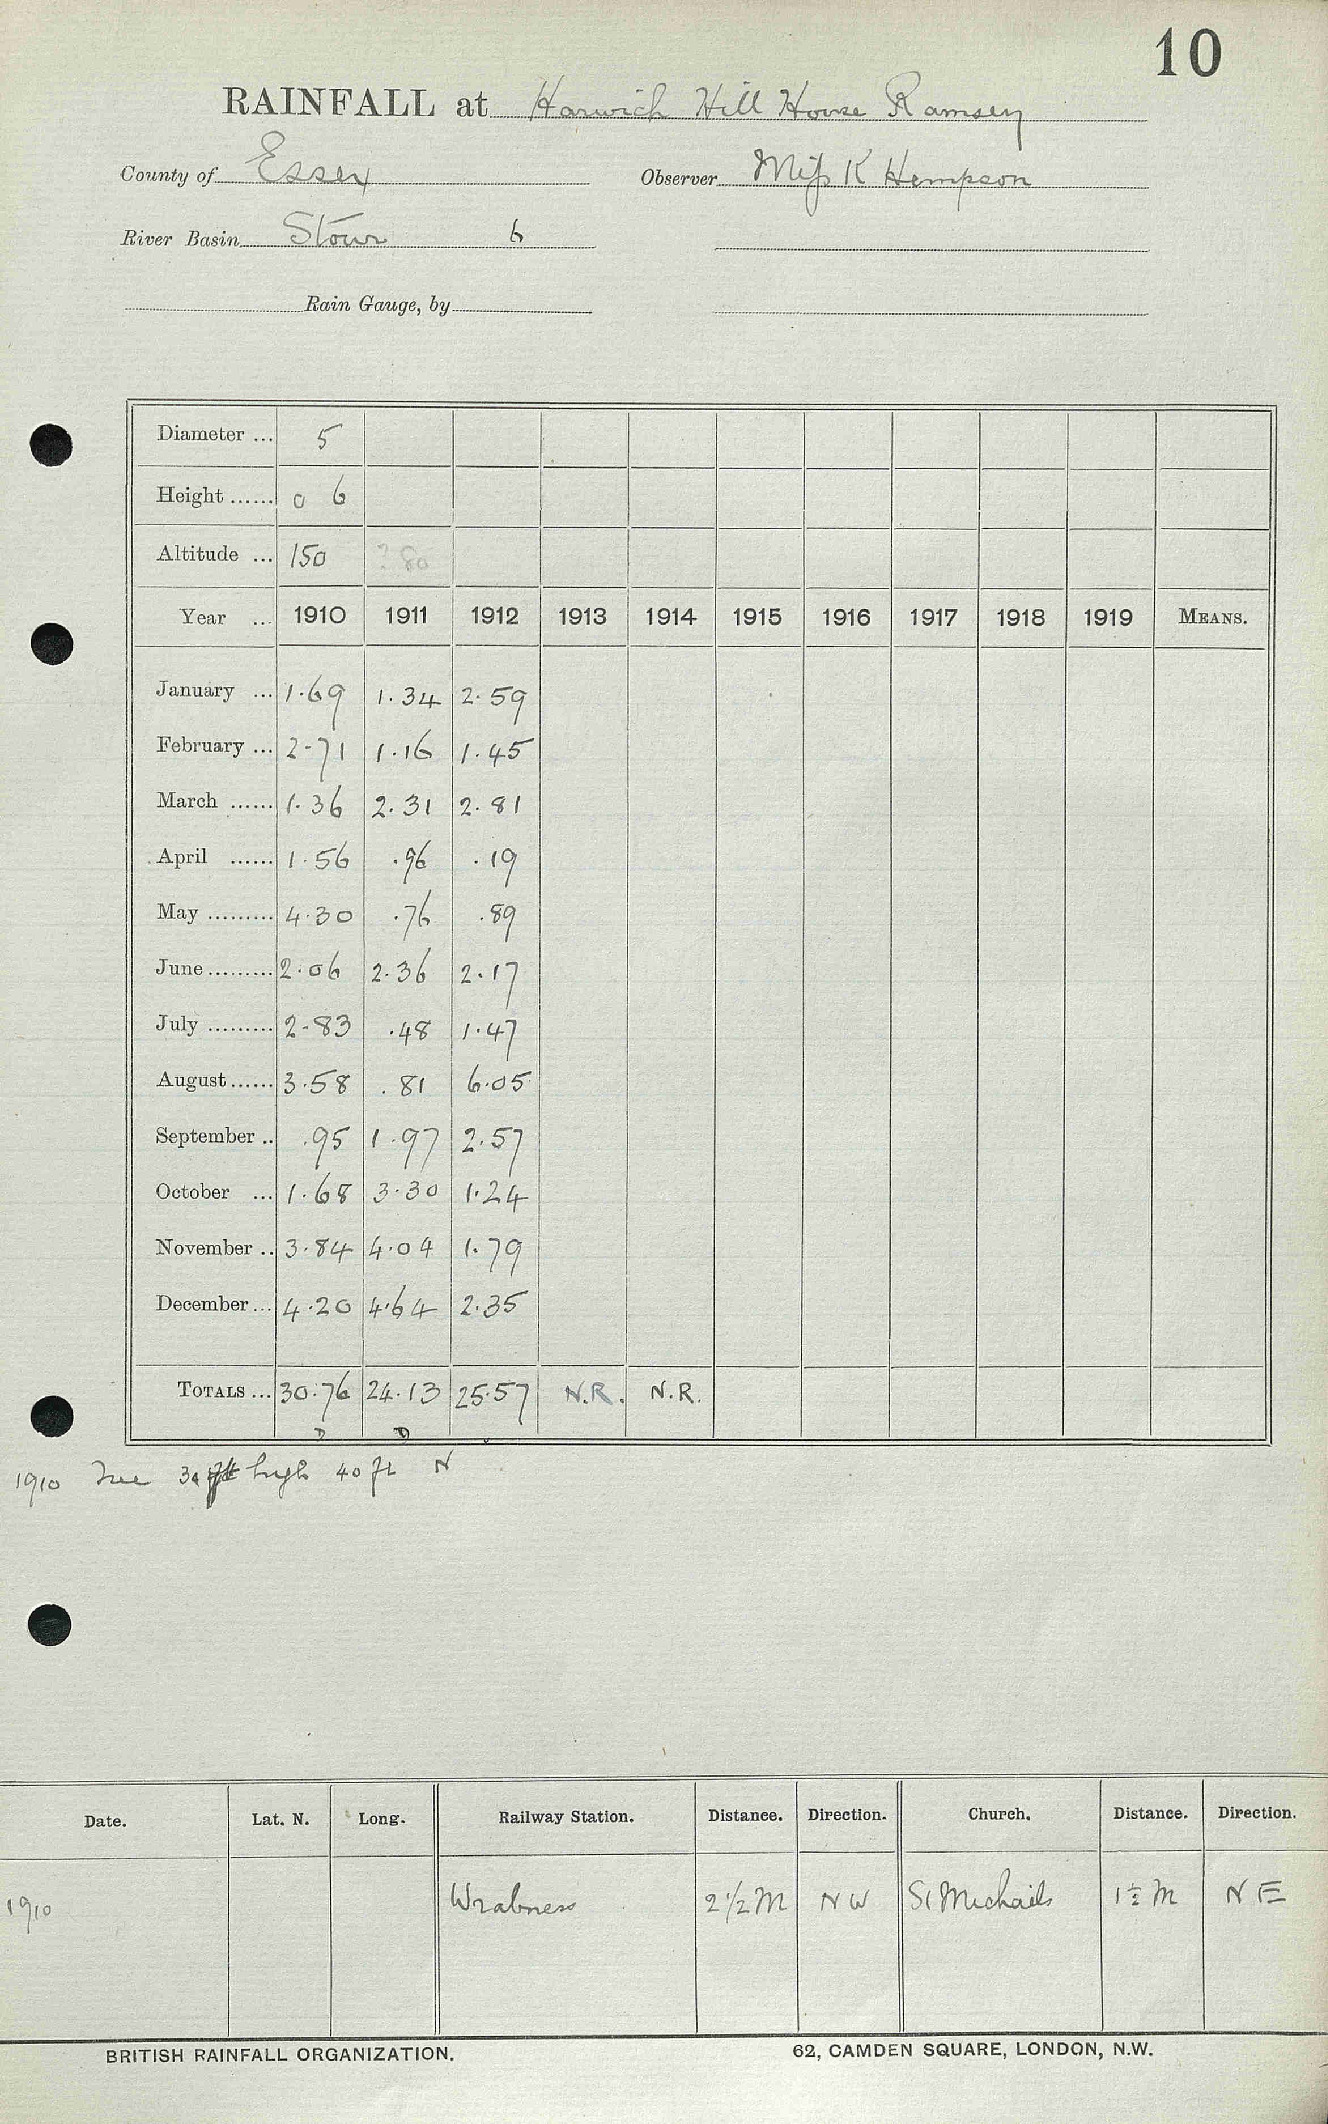 10
RAINFALL at Harwich Hill House Ramsey
County of Essex Observer Miss K Hempson
River Basin Stour 6
Rain Gauge, by
Diameter ... 5
Height ...... 0 6
Altitude ... 150 ? 80
Year ... 1910 1911 1912 1913 1914 1915 1916 1917 1918 1919 MEANS.
January ... 1.69 1.34 2.59
February ... 2.71 1.16 1.45
March ...... 1.36 2.31 2.81
April ...... 1.56 .96 .19
May ......... 4.30 .76 .89
June ......... 2.06 2.36 2.17
July ......... 2.83 .48 1.47
August ...... 3.58 .81 6.05
September .. .95 1.97 2.57
October ... 1.68 3.30 1.24
November .. 3.84 4.04 1.79
December ... 4.20 4.64 2.35
TOTALS ... 30.76 24.13 25.57 N.R. N.R.
D D
1910 Tree 30 ft high 40 ft N
Date. Lat. N. Long. Railway Station. Distance. Direction. Church. Distance. Direction.
1910 Wrabness 2 1/2 M NW St Michaels 1 1/2 M NE
BRITISH RAINFALL ORGANIZATION. 62, CAMDEN SQUARE, LONDON, N.W.